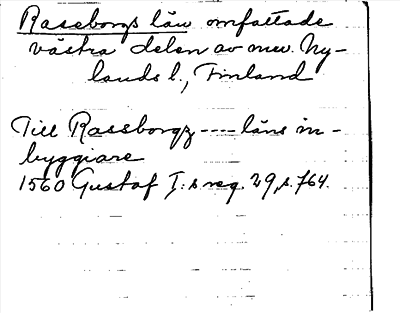 Raseborgs län omfattade
västra delen av nuv. Ny-
lands l., Finland
Till Rassborgz ---- läns in-
byggiare
1560 Gustaf I:s reg. 29, s. 764.